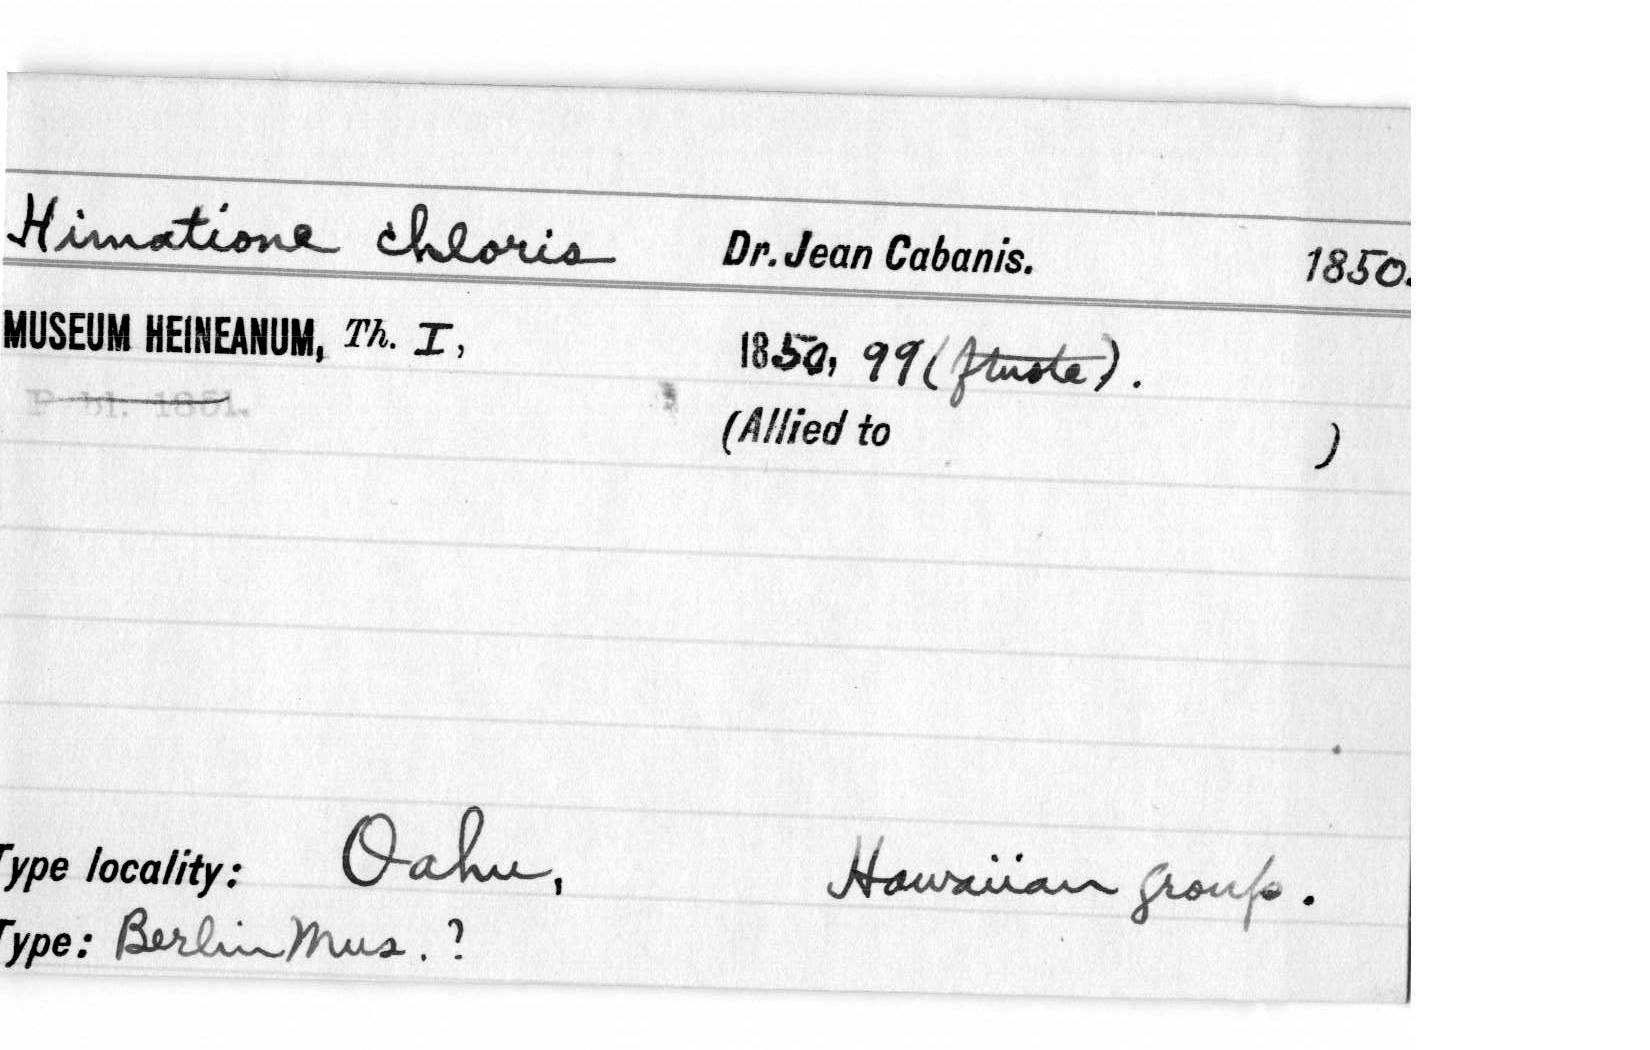 Himatione chloris Dr. Jean Cabanis. 1850.
MUSEUM HEINEANUM, Th. I, 1850, 99 (ftnote).
Publ. 1851.
(Allied to )
Type locality: Oahu, Hawaiian group.
Type: Berlin Mus. ?